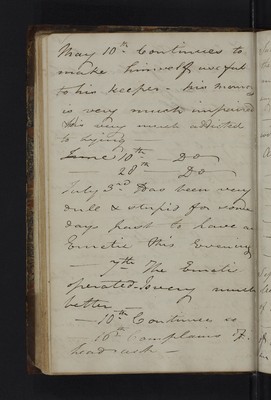 May 10th Continues to
make himself useful
to his keeper - his memory
is very much impaired
His very much addicted
to lying
June 10th - Do
— 28th — Do
July 3rd Has been very
dull & stupid for some
days past to have an
Emetic this Evening
— 7th The Emetic
operated & very much
better
— 10th Continues so
16th Complains of
head ach —